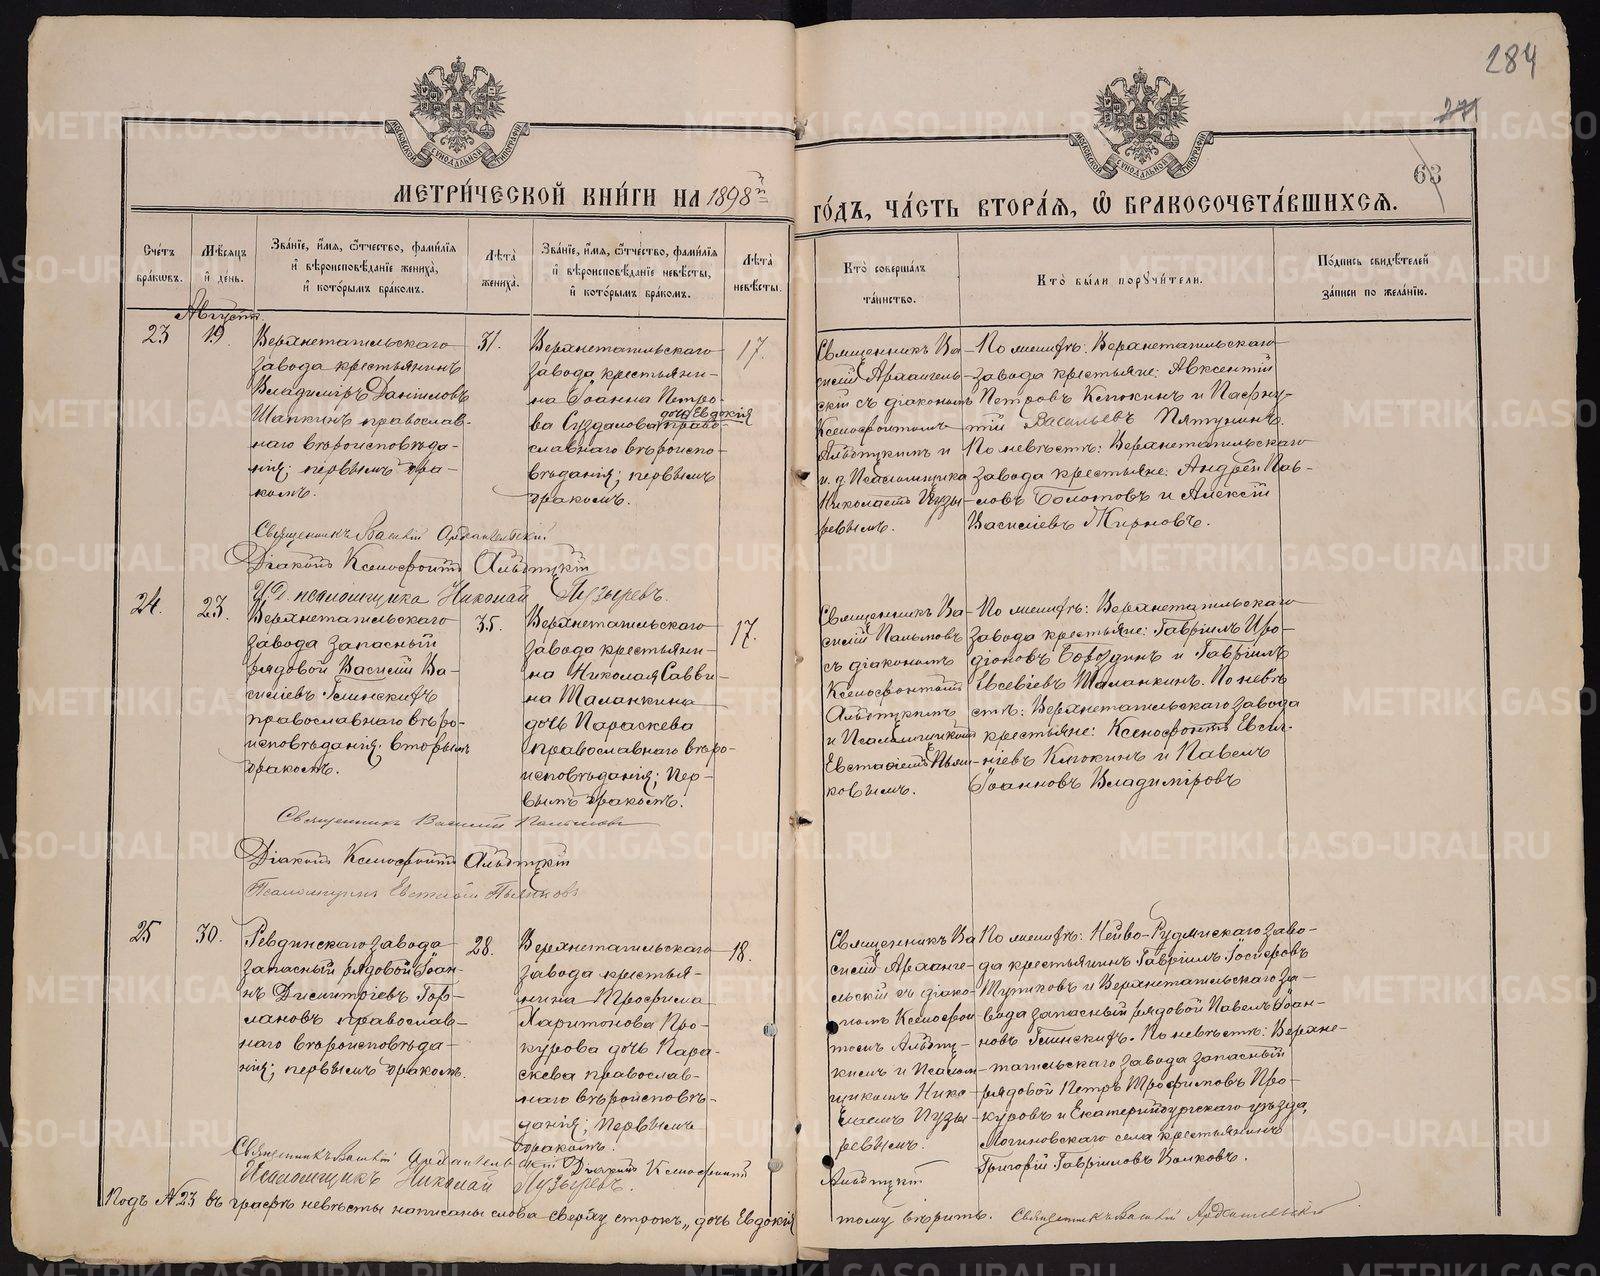 284
271
63
МОСКОВСКОЙ СУНОДАЛЬНОЙ ТИПОГРАФІИ
МОСКОВСКОЙ СУНОДАЛЬНОЙ ТИПОГРАФІИ
МЕТРИ́ЧЕСКОЙ КНИ́ГИ НА 1898й
ГО́ДЪ, ЧА́СТЬ ВТОРА́Я, Ѽ БРАКОСОЧЕТА́ВШИХСЯ.
Сче́тъ бра́кѡвъ.
Мѣ́сяцъ и҆ день.
Зва́нїе, и҆́мя, ѻ҆́тчество, фами́лїя и҆ вѣроисповѣ́данїе жениха̀, и҆ кото́рымъ бра́комъ.
Лѣ́та жениха̀.
Зва́нїе, и҆́мя, ѻ҆́тчество, фами́лїя и҆ вѣроисповѣ́данїе невѣ́сты, и҆ кото́рымъ бра́комъ.
Лѣ́та невѣ́сты.
Кто̀ соверша́лъ та́инство.
Кто̀ бы́ли порꙋчи́тели.
По́дпись свидѣ́телей за́писи по жела́нїю.
Августъ.
23
19.
Верхнетагильскаго
завода крестьянинъ
Владиміръ Даніиловъ
Шапкинъ православ-
наго вѣроисповѣда-
нія; первымъ бра-
комъ.
31.
Верхнетагильскаго
завода, крестьяни-
на Іоанна Петро-
дочь Евдокія
ва Суздалова право-
славнаго вѣроиспо-
вѣданія; первымъ
бракомъ.
17.
Священникъ Ва-
силій Архангель-
скій съ діакономъ
Ксенофонтомъ
Альбицкимъ и
и. д. псаломщика
Николаемъ Пузы-
ревымъ.
По женихѣ: Верхнетагильскаго
завода крестьяне: Авксентій
Петровъ Клюкинъ и Пафну-
тій Васильевъ Пятунинъ.
По невѣстѣ: Верхнетагильскаго
завода крестьяне: Андрей Пав-
ловъ Болотовъ и Алексій
Василіевъ Жирновъ.
Священникъ Василій Архангельскій
Діаконъ Ксенофонтъ Альбицкій
И. д. псаломщика Николай Пузыревъ.
24.
23.
Верхнетагильскаго
завода запасный
рядовой Василій Ва-
силіевъ Глинскихъ
православнаго вѣро-
исповѣданія; вторымъ
бракомъ.
35.
Верхнетагильскаго
завода крестьяни-
на Николая Савви-
на Шаманкина
дочь Параскева
православнаго вѣро-
исповѣданія; пер-
вымъ бракомъ.
17.
Священникъ Ва-
силій
съ діакономъ
Ксенофонтомъ
Альбицкимъ
и Псаломщикомъ
Евстафіемъ Пьян-
ковымъ.
По женихѣ: Верхнетагильскаго
завода крестьяне: Гавріилъ Иро-
діоновъ Бороздинъ и Гавріилъ
Евсевіевъ Шаманкинъ. По невѣ-
стѣ: Верхнетагильскаго завода
крестьяне: Ксенофонтъ Евси-
гніевъ Клюкинъ и Павелъ
Іоанновъ Владиміровъ
Священникъ Василій
Діаконъ Ксенофонтъ Альбицкій
Псаломщикъ Евстафій Пьянковъ
25
30.
Ревдинскаго завода
запасный рядовой Іоан-
нъ Димитріевъ Гор-
лановъ православ-
наго вѣроисповѣда-
нія; первымъ бракомъ.
28.
Верхнетагильскаго
завода крестья-
нина Трофима
Харитонова Про-
курова дочь Пара-
скева православ-
наго вѣроисповѣ-
данія; первымъ
бракомъ.
18.
Священникъ Ва
силій Арханге-
льскій съ діако-
номъ Ксенофон
томъ Альбиц-
кимъ и Псалом
щикомъ Нико-
лаемъ Пузы
ревымъ.
По женихѣ: Нейво-Рудянскаго заво-
да крестьянинъ Гавріилъ Іосифовъ
Тупиковъ и Верхнетагильскаго за-
вода запасный рядовой Павелъ Іоан-
новъ Глинскихъ. По невѣстѣ: Верхне-
тагильскаго завода запасный
рядовой Петръ Трофимовъ Про-
куровъ и Екатеринбургскаго уѣзда,
Логиновскаго села крестьянинъ
Григорій Гавріиловъ Волковъ.
Священникъ Василій Архангельскій Діаконъ Ксенофонтъ
Альбицкій
Псаломщикъ Николай Пузыревъ.
Подъ №23 въ графѣ невѣсты написаны слова сверху строкъ „дочь Евдокія
тому вѣрить. Священникъ Василій Архангельскій